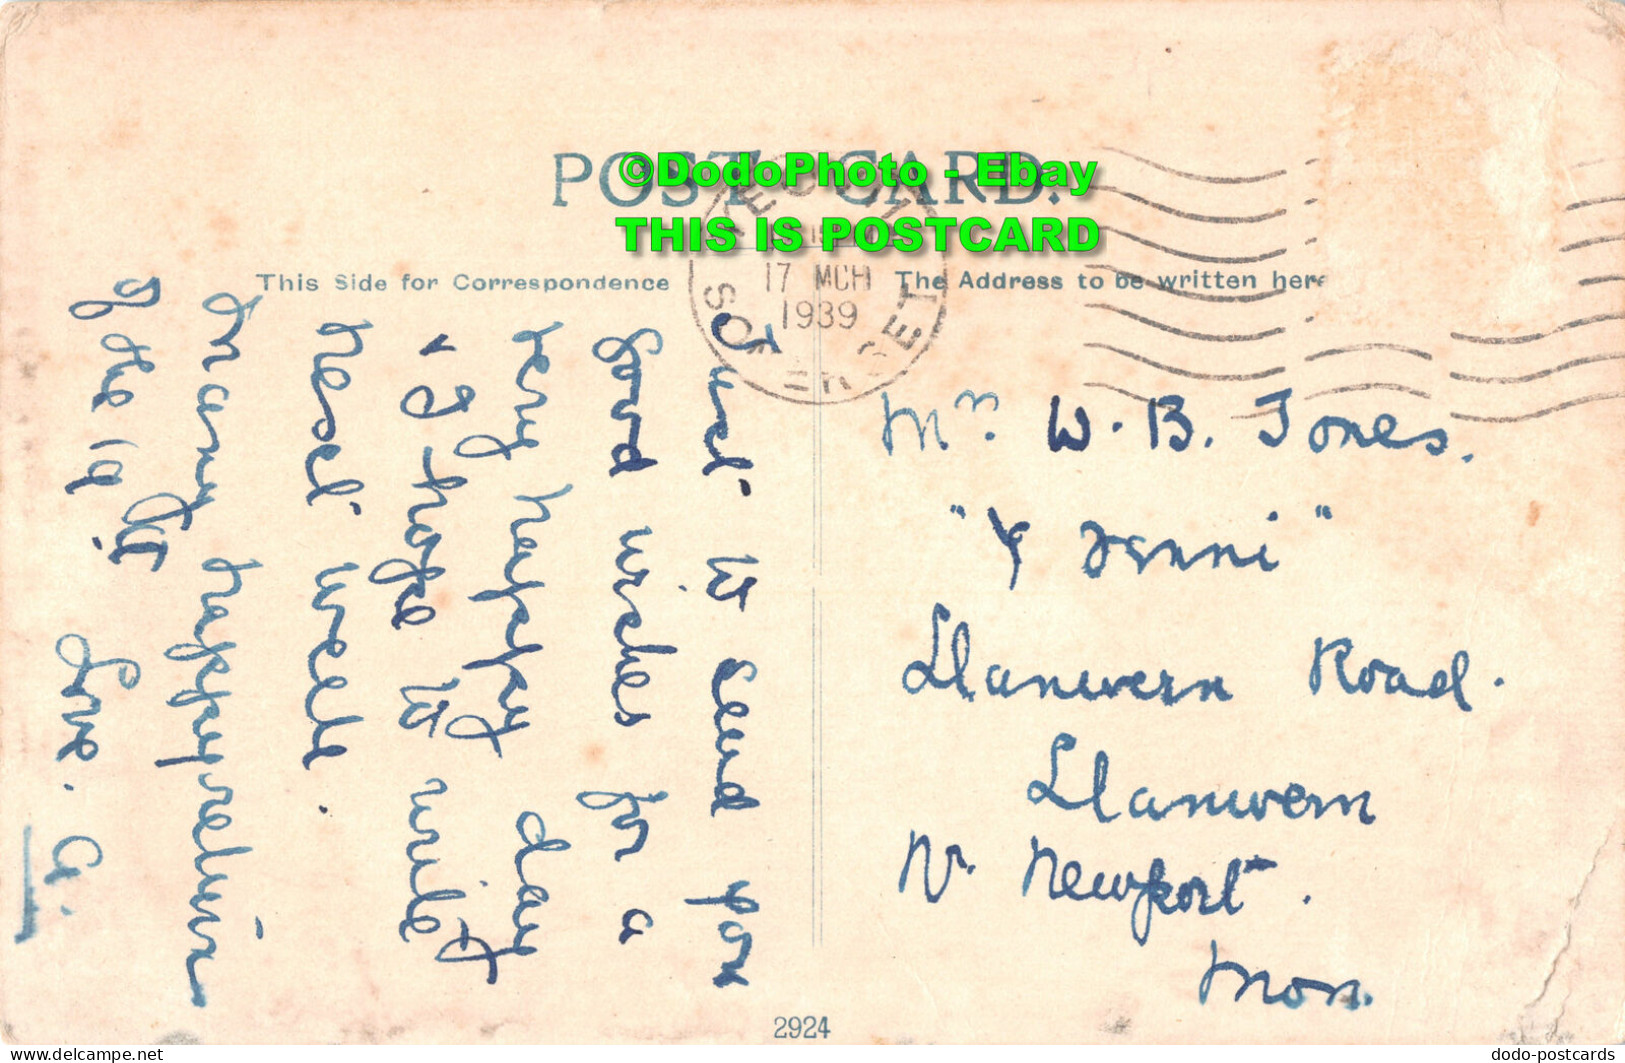 POST CARD.
©DodoPhoto - Ebay
THIS IS POSTCARD
17 MCH
1939
SOMERSET
This Side for Correspondence
The Address to be written here
Just to send you
Good wishes for a
very happy day
& I hope to write
next week.
Many happy returns
of the 19th!
Love. G.
Mrs. W. B. Jones.
"Y Fanni"
Llanwern Road.
Llanwern
Nr. Newport.
Mon.
2924
delcampe.net
dodo-postcards